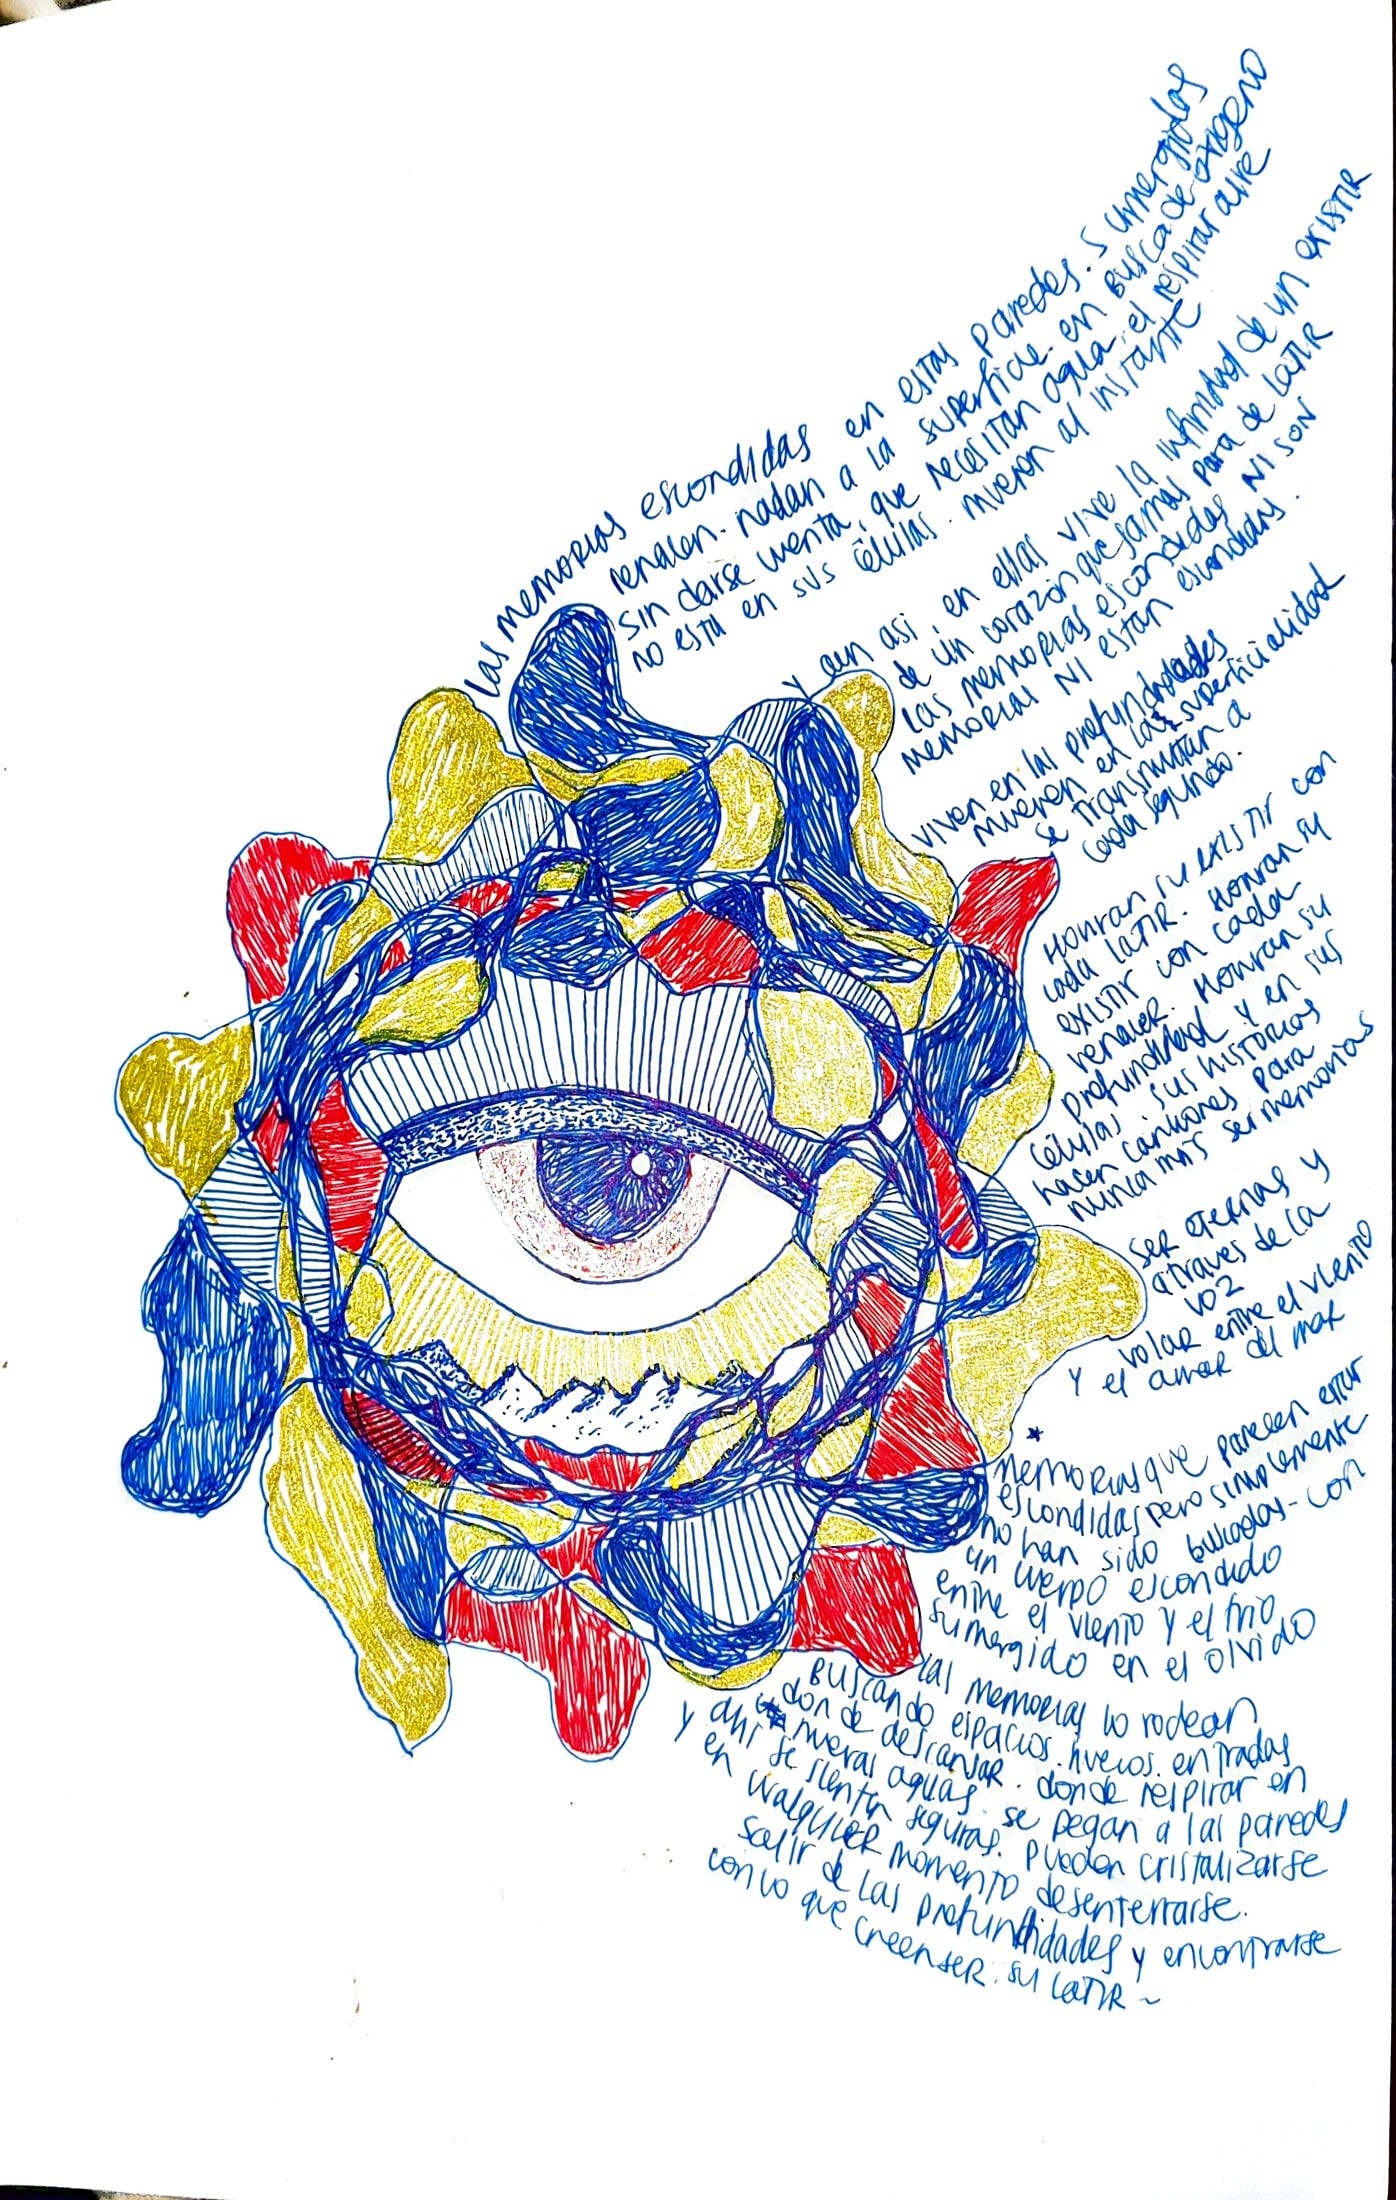 Las memorias escondidas en estas paredes. Sumergidas
renacen. nadan a la superficie. en busca de oxigeno
sin darse cuenta, que necesitan agua, el respirar aire
no esta en sus células. mueren al instante
y aun asi, en ellas vive la infinidad de un existir
de un corazón que jamas para de latir
las memorias escondidas ni son
memorias ni estan escondidas.
viven en las profundidades
mueren en la superficialidad
se transmutan a
cada segundo.
Honran su existir con
cada latir. Honran su
existir con cada
renacer. Honran su
profundidad y en sus
células, sus historias
hacen canciones para
nunca mas ser memorias
ser eternas y
a traves de la
voz
volar entre el viento
y el amar del mar
* memorias que parecen estar
escondidas pero simplemente
no han sido buscadas - con
un cuerpo escondido
entre el viento y el frio
sumergido en el olvido
las memorias lo rodean
Buscando espacios. huecos. entradas
donde descansar. donde respirar en
nuevas aguas. se pegan a las paredes
y ahi se sienten seguras. pueden cristalizarse
en cualquier momento desenterrarse.
salir de las profundidades y encontrarse
con lo que creen ser. su latir ~